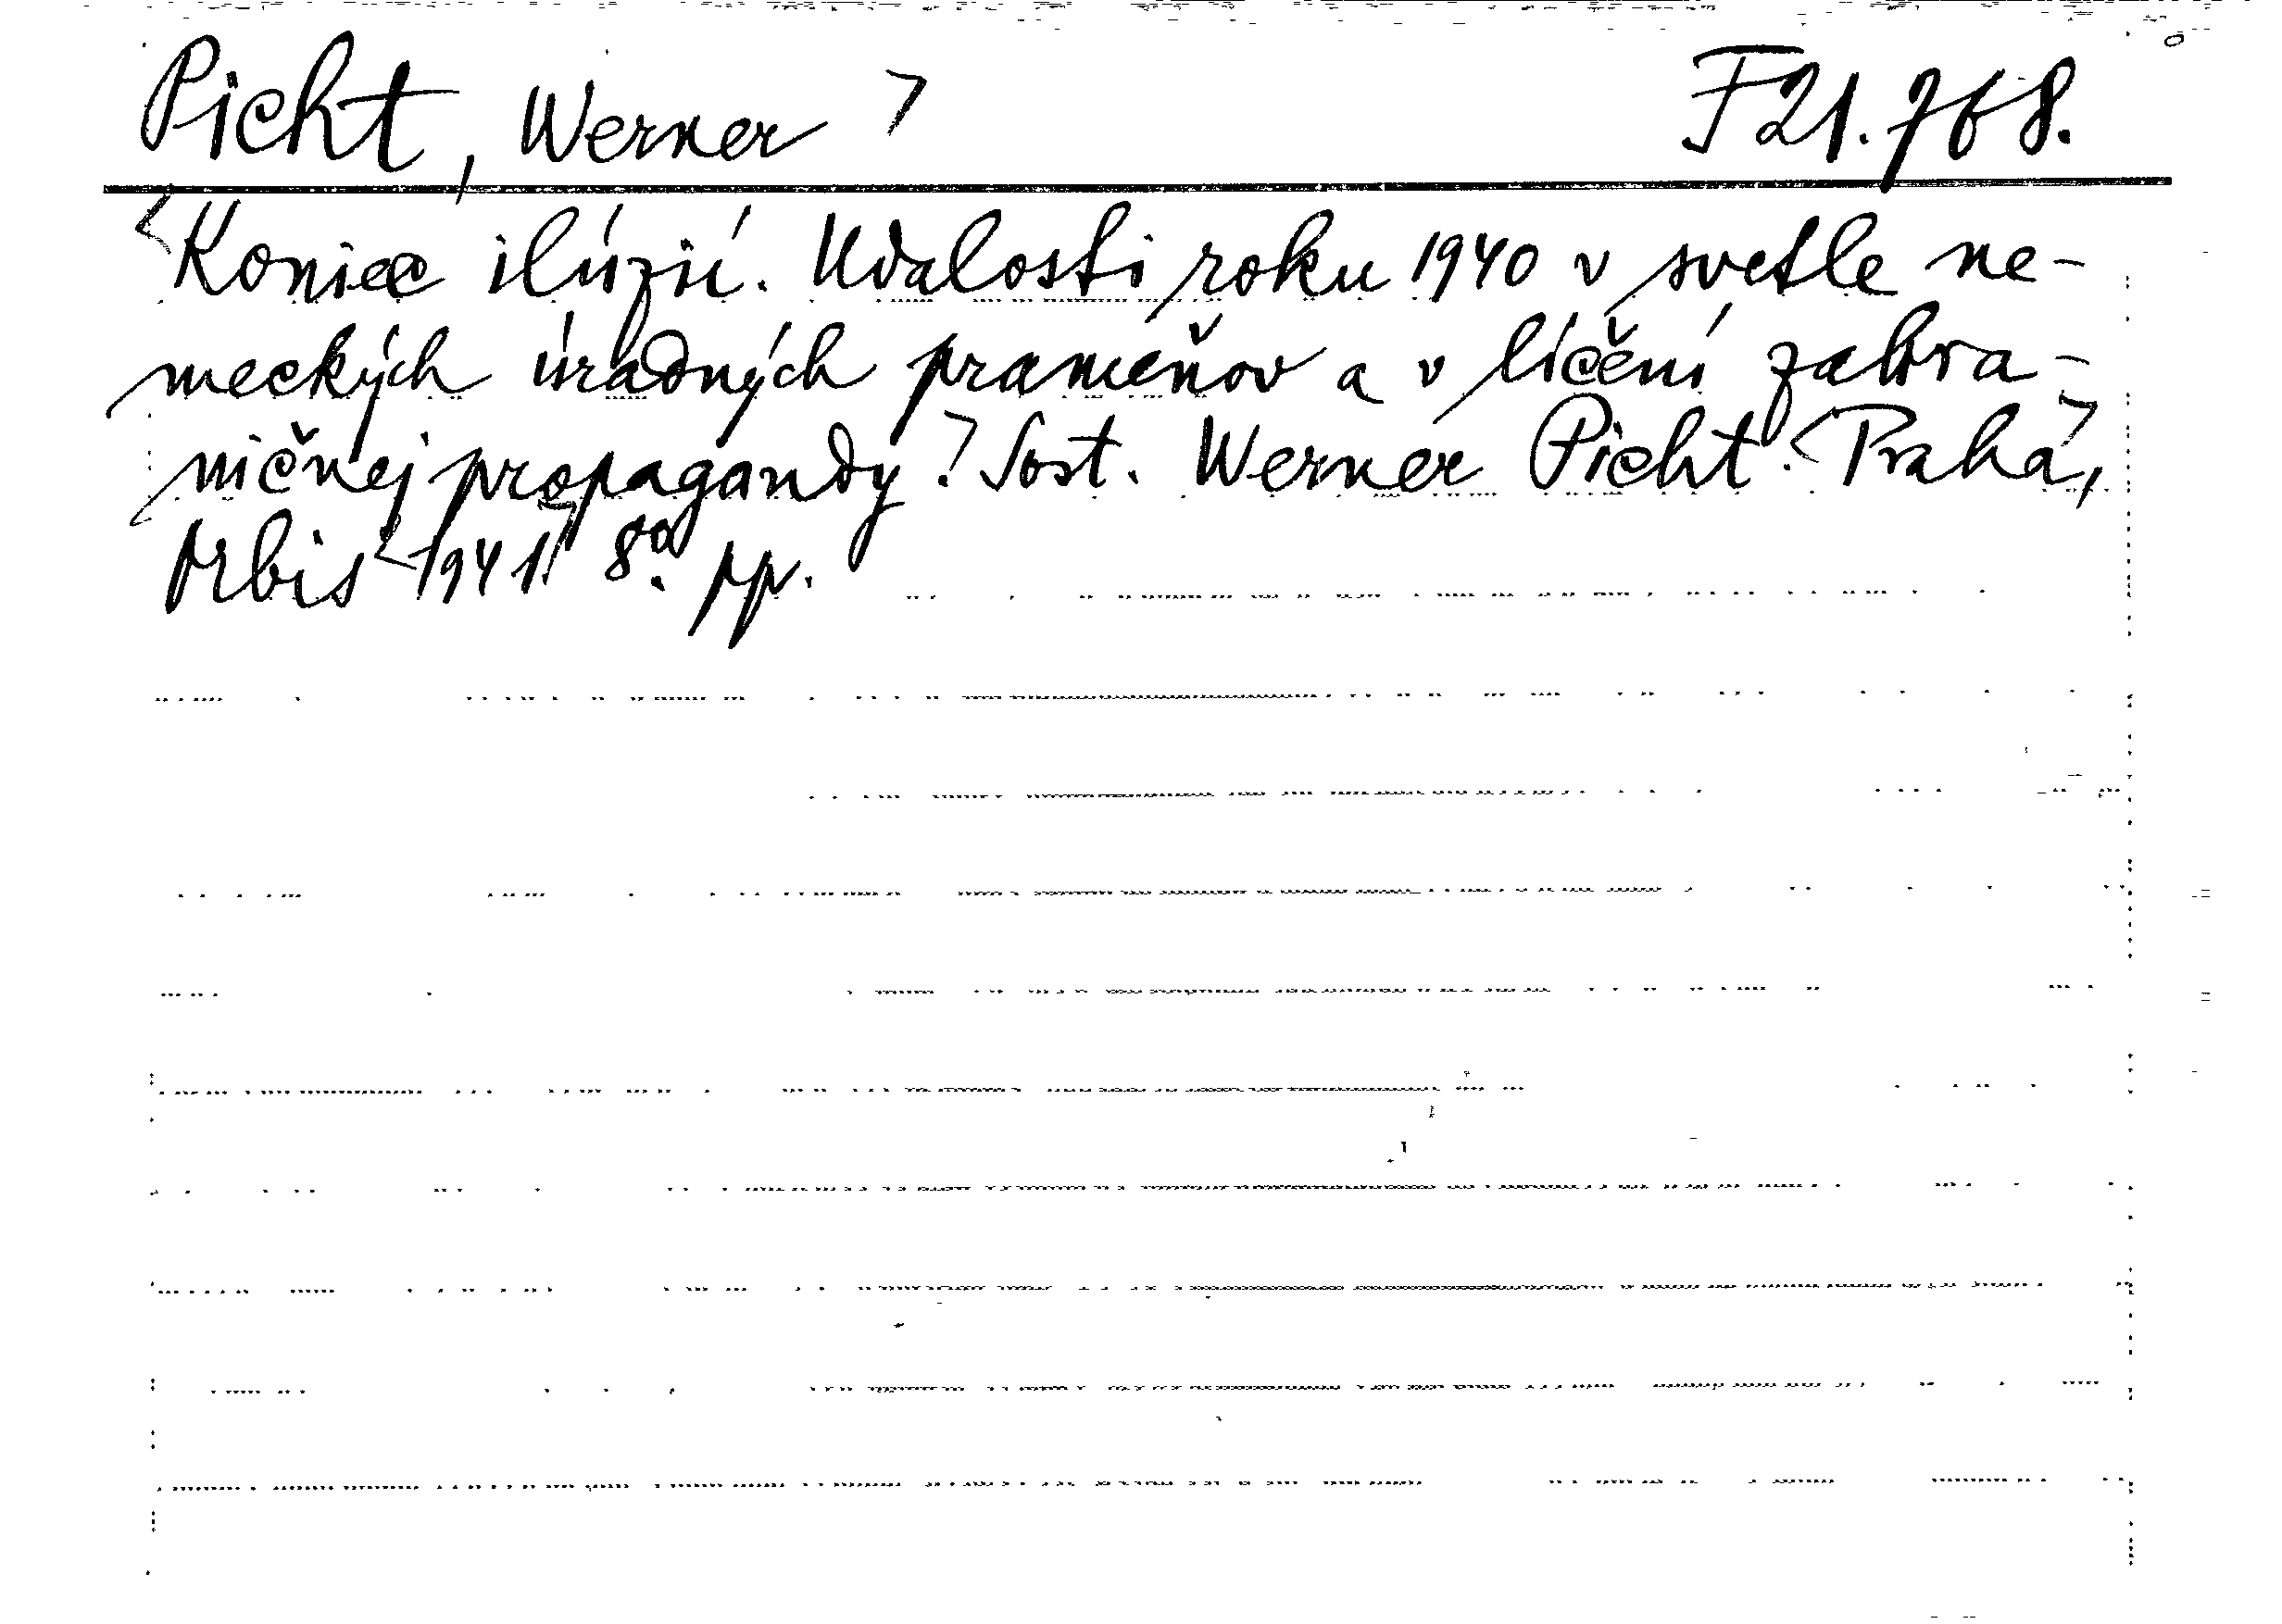 Picht, Werner > F21.768.
<Koniec ilúzií. Udalosti roku 1940 v svetle ne-
meckých úradných prameňov a v líčení zahra-
ničnej propagandy.> Sost. Werner Picht. <Praha>,
Orbis <1941>. 8°. pp.